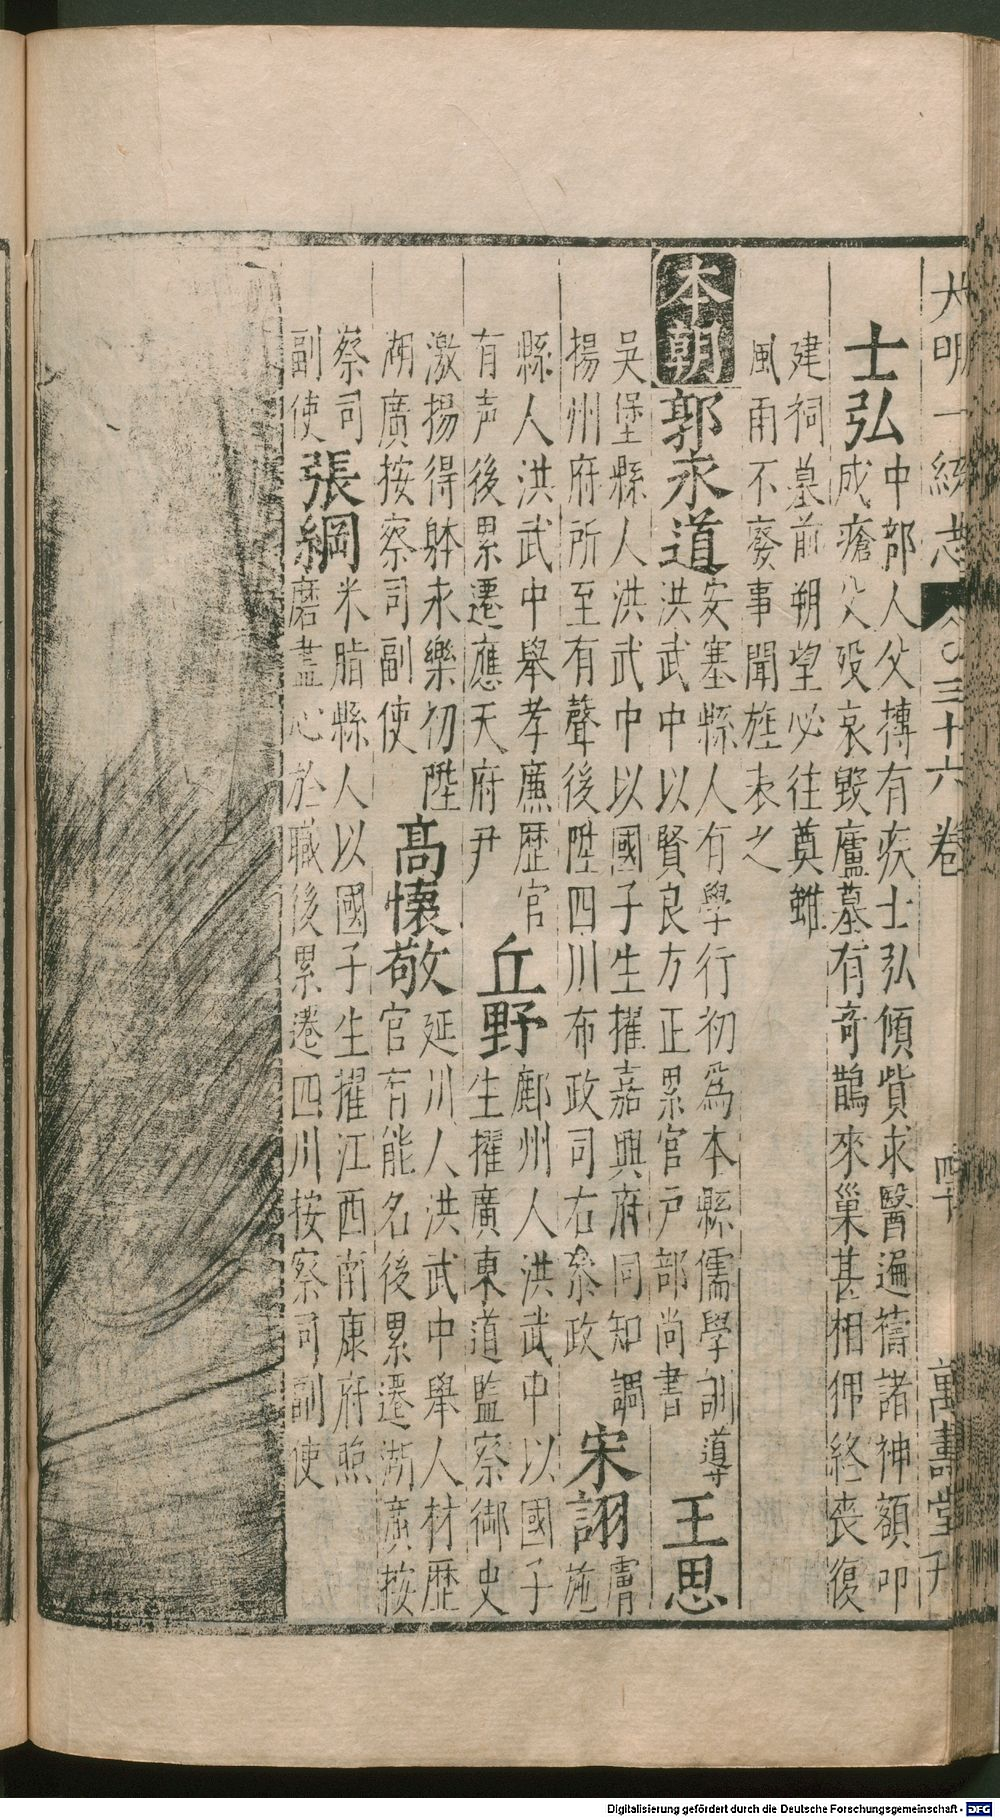 大明一統志 卷之三十六卷 萬壽堂刊
士弘中部人父摶有疾士弘傾貲求醫遍禱諸神額叩
成瘡父歿哀毀廬墓有奇鵲來巢甚相狎終喪復
建祠墓前朔望必往奠雖
風雨不廢事聞旌表之
本朝郭永道安塞縣人有學行初爲本縣儒學訓導
洪武中以賢良方正累官戸部尚書王思
吳堡縣人洪武中以國子生擢嘉興府同知調
揚州府所至有聲後陞四川布政司右叅政宋詡膚
施
縣人洪武中舉孝廉歷官
有声後累遷應天府尹丘野鄜州人洪武中以國子
生擢廣東道監察御史
激揚得躰永樂初陞
湖廣按察司副使高懷敬延川人洪武中舉人材歷
官有能名後累遷湖廣按
蔡司
副使張綱米脂縣人以國子生擢江西南康府照
磨盡心於職後累遷四川按察司副使
Digitalisierung gefördert durch die Deutsche Forschungsgemeinschaft - DFG